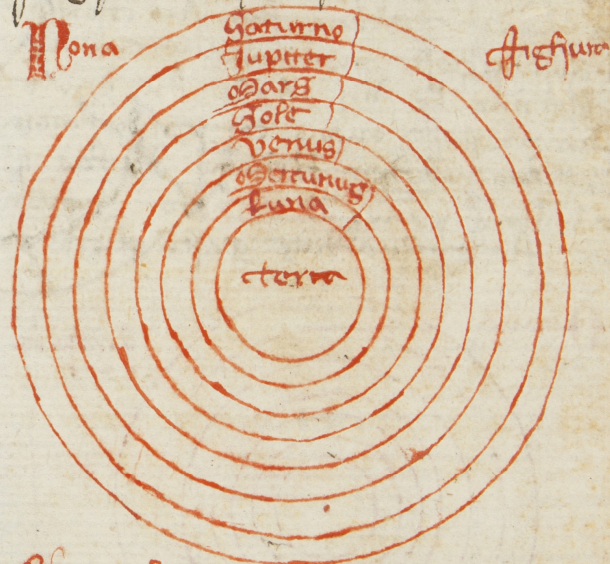 Nona fighura
Saturno
Jupiter
Mars
Sole
Venus
Mercurius
Luna
terra